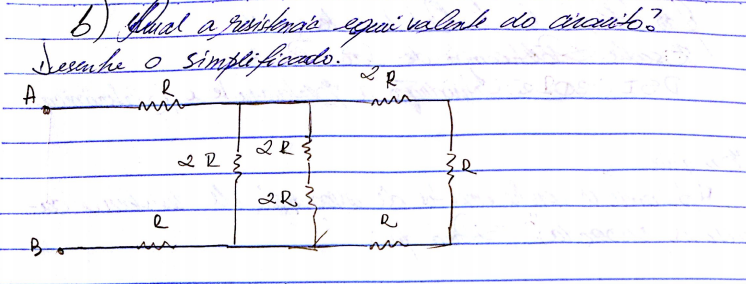 b) Qual a resistência equivalente do circuito?
Desenhe o simplificado.
A R 2R
2R 2R R
2R
B R R